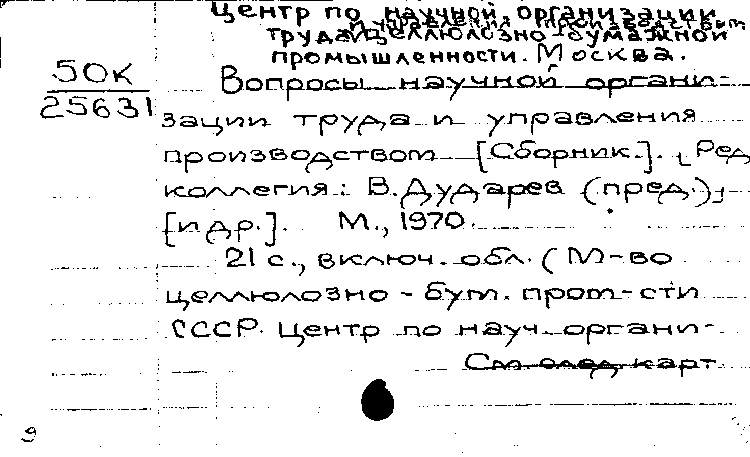 Центр по научной организации
и управления производством
труда целлюлозно-бумажной
промышленности. Москва.
50к
25631
Вопросы научной органи-
зации труда и управления
производством [Сборник.]. Ред
коллегия: В. Дударев (пред.),
[и др.]. М., 1970.
21 с., включ. обл. (М-во
целлюлозно-бум. пром-сти
СССР. Центр по науч. органи-
См. след. карт.
9